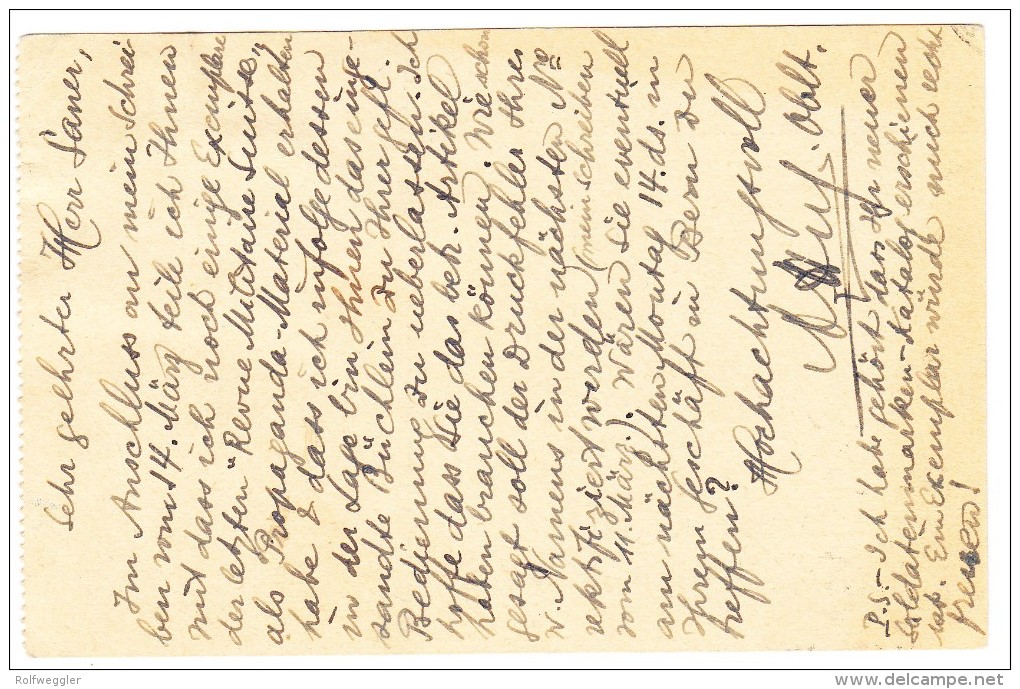 Sehr geehrter Herr Saner,
Im Anschluss an mein Schrei-
ben vom 14. März teile ich Ihnen
mit dass ich noch einige Exemplare
der letzten "Revue Militaire Suisse,"
als Propaganda-Material erhalten
habe & dass ich infolgedessen
in der Lage bin Ihnen das einge-
sandte Büchlein zu Ihrer gefl.
Bedienung zu ueberlassen. Ich
hoffe dass Sie das betr. Artikel
haben brauchen können. Wie schon
gesagt soll der Druckfehler Ihres
w. Namens in der nächsten No
rektifiziert werden (mein schreiben
vom 11. März). Wären Sie eventuell
am nächsten Montag 14. ds. in
Ihrem Geschäft in Bern zu
treffen?
Hochachtungsvoll
Oblt.
P.S.- Ich habe gehört dass Ihr neuer
Soldatenmarken-Katalog erschienen
ist. Ein Exemplar würde mich recht
freuen!
Rolfweggler
delcampe.net